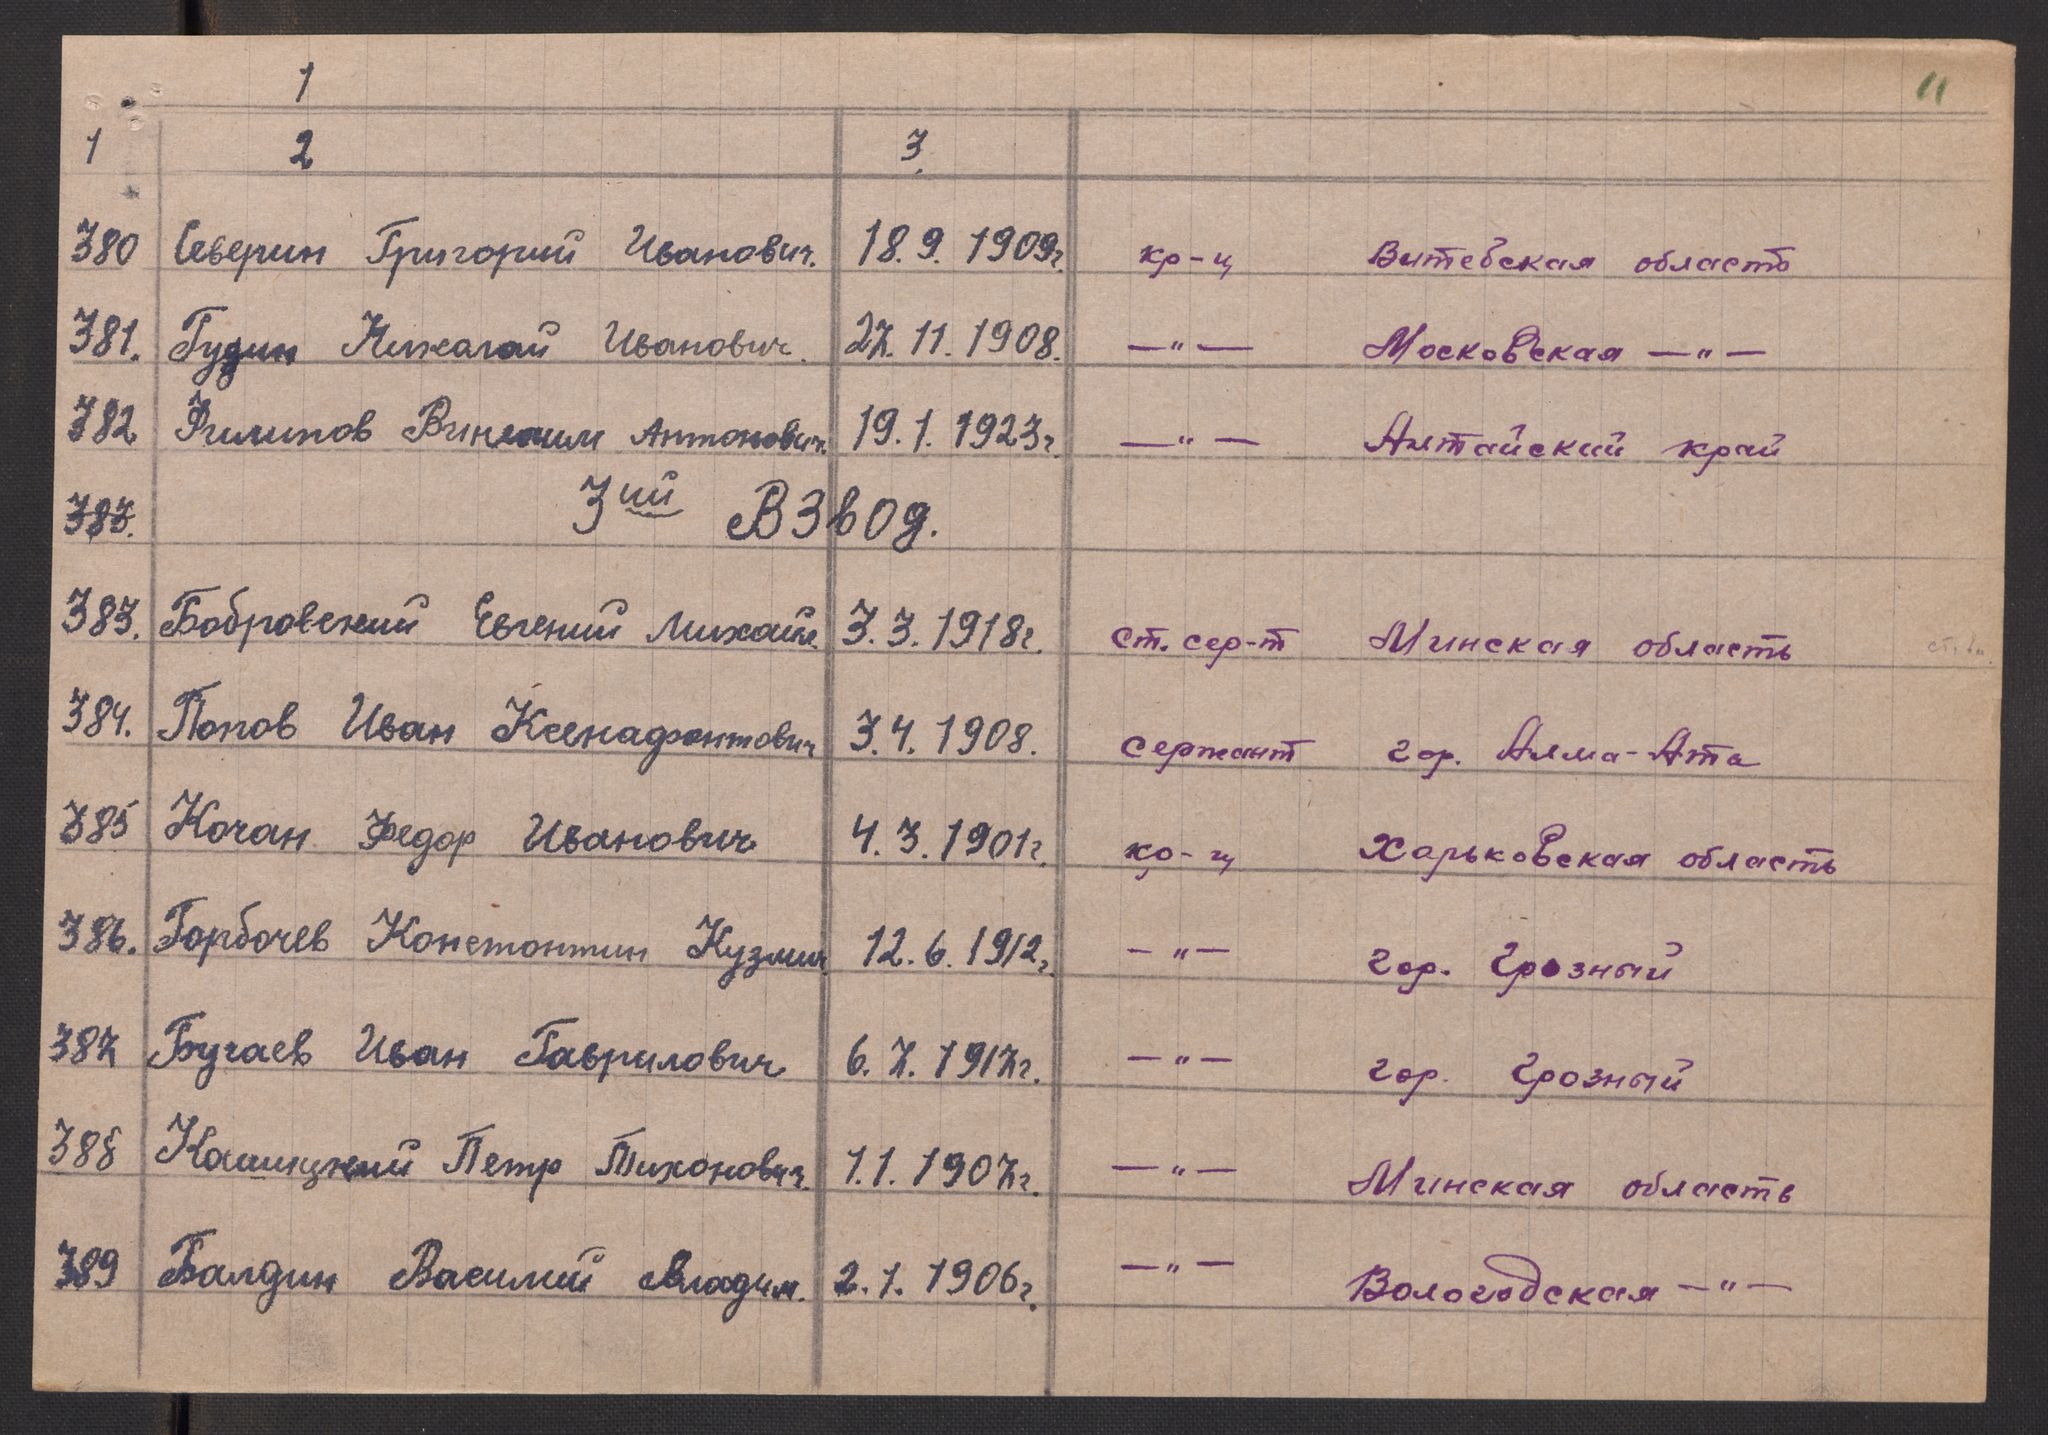 1 11
1 2 3.
380 Северин Григорий Иванович. 18.9.1909г. кр-ц Витебская область
381. Гудин Иванович. 27.11.1908. —"— Московская —"—
382 Филипов Антонович. 19.1.1923г. —"— Алтайский край
383. 3ий Взвод.
383. Бобровский Евгений Михайл. 3.3.1918г. ст. сер-т Минская область
384. Попов Иван Ксенафонтович 3.4.1908. сержант гор. Алма-Ата
385 Кочан Федор Иванович 4.3.1901г. кр-ц Харьковская область
386. Горбочев Констонтин Кузмич 12.6.1912г. —"— гор. Грозный
387 Бучаев Иван Гаврилович 6.7.1917г. —"— гор. Грозный
388 Петр Тихонович. 1.1.1907г. —"— Минская область
389 Балдин Василий Владим. 2.1.1906г. —"— Вологодская —"—